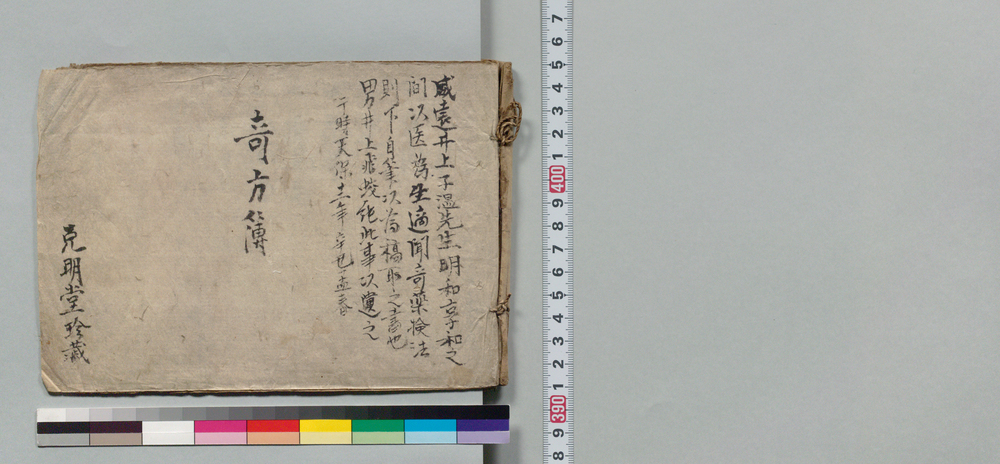 威遠井上子温先生明和享和之
間以医為生適聞奇薬検法
則下自筆以為稿即之書也
男井上 此事以 之
于時天保十二年辛丑孟春
奇方簿
克明堂珍蔵
7
6
5
4
3
2
1
400
9
8
7
6
5
4
3
2
1
390
9
8